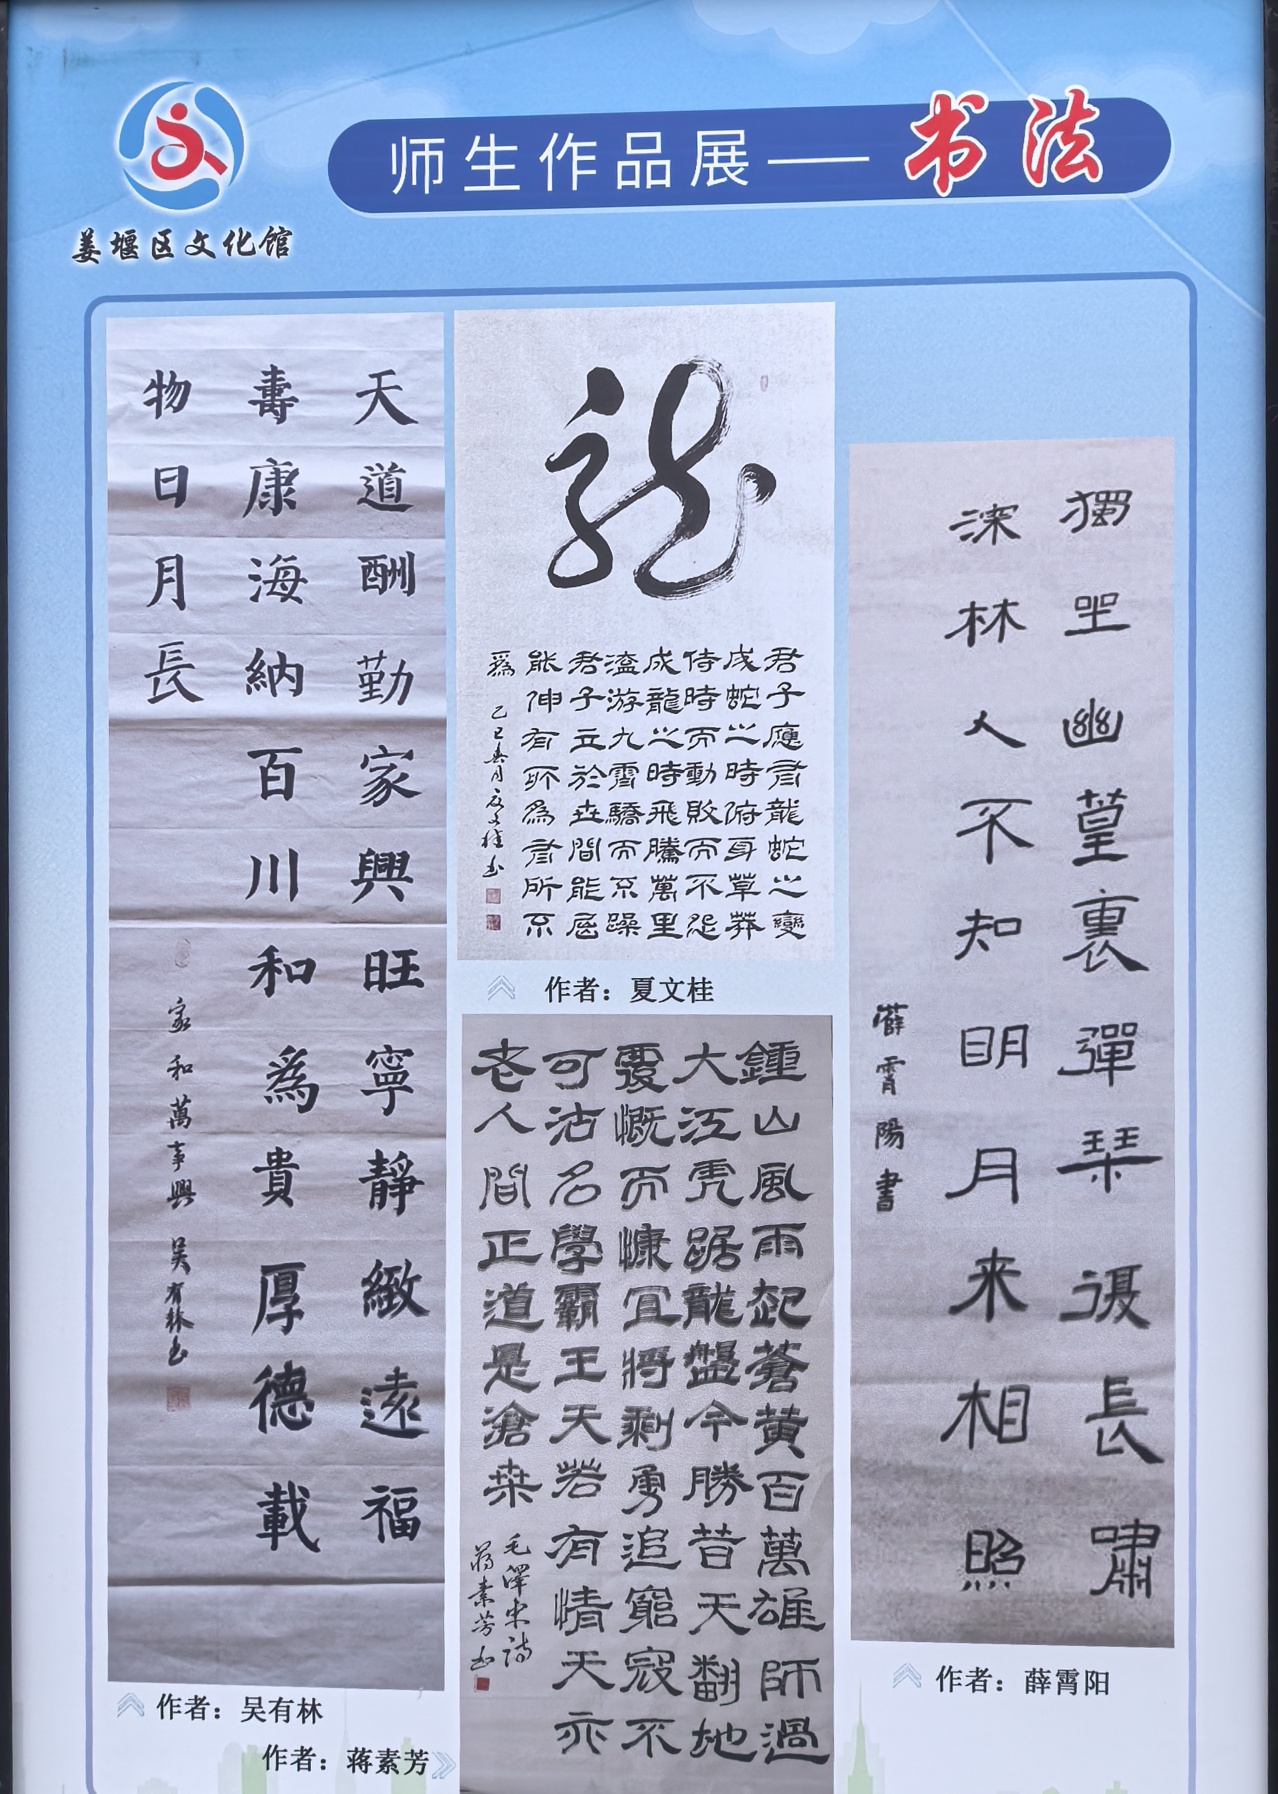 师生作品展——书法
姜堰区文化馆
天道酬勤家興旺寧靜緻遠福
壽康海納百川和為貴厚德載
物日月長
家和萬事興 吴有林书
作者：吴有林
龍
君子應有龍蛇之變
戌蛇之時俯身草莽
成龍之時飛騰萬里
侍時而動敗而不怨
溘游九霄驕而不躁
君子立於世間能屈
能伸有所為有所不
爲
乙巳春月夏文桂书
作者：夏文桂
鍾山風雨起蒼黄百萬雄師過
大江虎踞龍盤今勝昔天翻地
覆慨而慷宜將剩勇追窮寇不
可沽名學霸王天若有情天亦
老人間正道是滄桑
毛澤東詩
蒋素芳书
作者：蒋素芳
獨坐幽篁裏彈琴復長嘯
深林人不知明月来相照
薛霄陽書
作者：薛霄阳